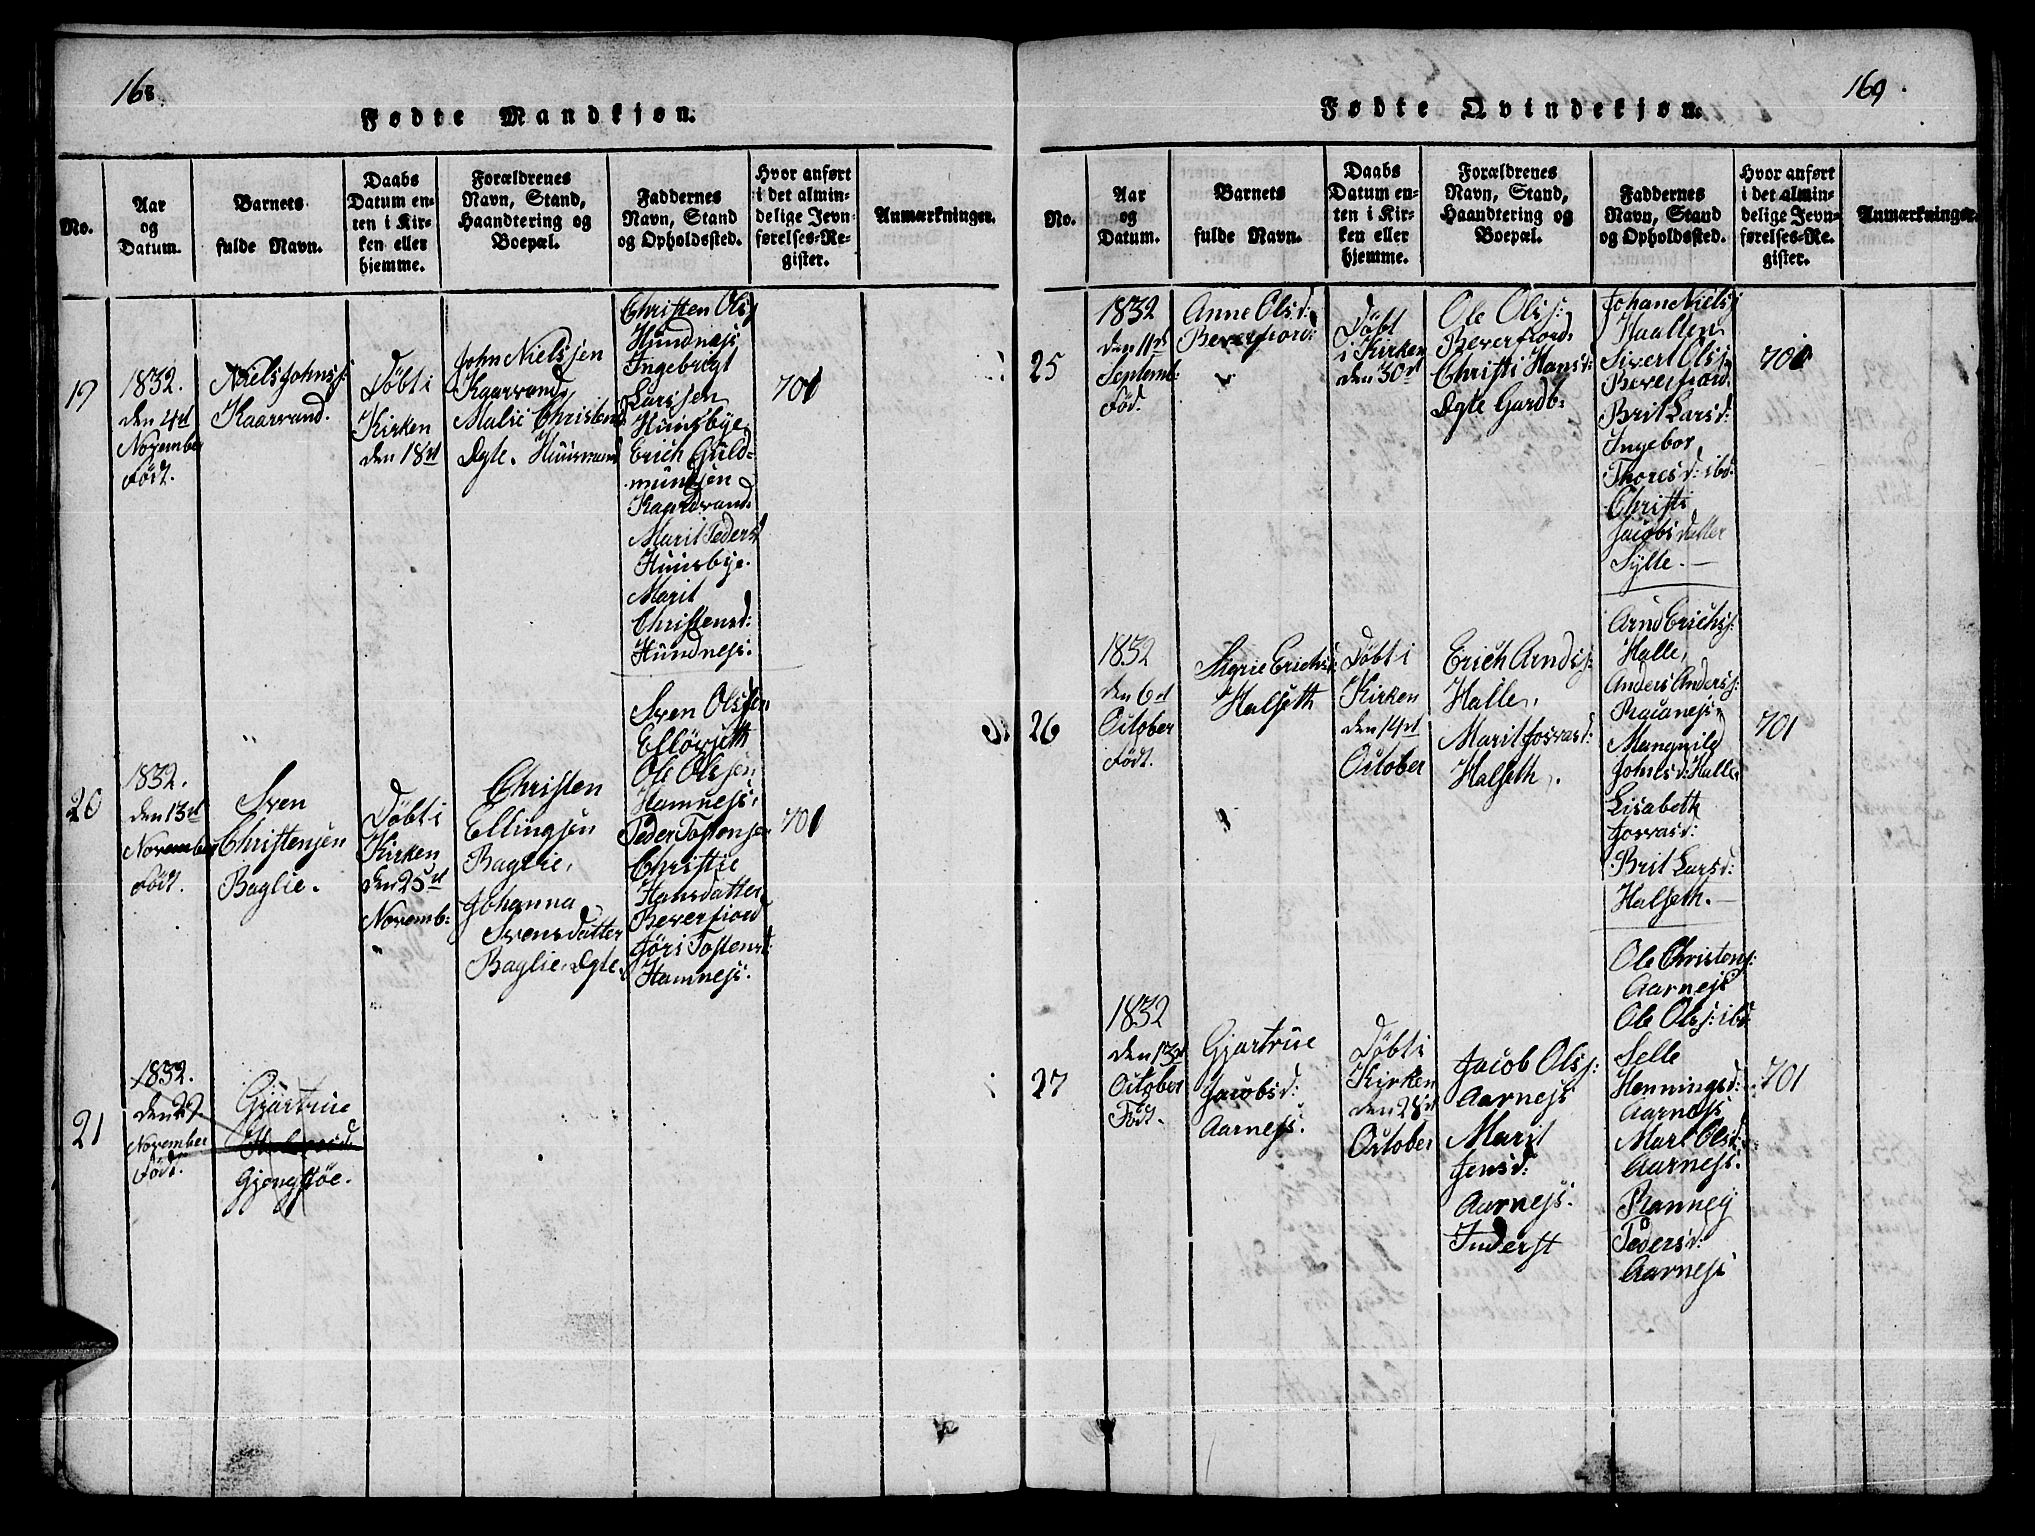 168.
Fødte Mandkjøn.
No.
Aar
og
Datum.
Barnets
fulde Navn.
Daabs
Datum en-
ten i Kir-
ken eller
hjemme.
Forældrenes
Navn, Stand,
Haandtering og
Boepæl.
Faddernes
Navn, Stand
og Opholdssted.
Hvor anført
i det almin-
delige Jevn-
førelses-Re-
gister.
Anmærkninger.
19
1832.
den 4de
November
Født.
Niels Johnss:
Kaarvand.
Døbt i
Kirken
den 18de
John Nielssen
Kaarvand,
Mali Christens
Dgte. Huusvand
Christen Olss
Hundness
Ingebrigt
Larssen
Huusbye,
Erich Guld-
mundsen
Kaardvand
Marit Peders
Huusbye.
Marit
Christensd:
Hundness.
701
20
1832.
den 13de
November
Født.
Sven
Christensen
Baglie.
Døbt i
Kirken
den 25de
Novemb:
Christen
Ellingsen
Baglie,
Johanna
Svensdatter
Baglie, Dgte.
Sven Olssen
Ole Olssen
Hamness,
Peder Tostensen
Christie
Hansdatter
Beverfiord
Jøri Tostensd:
Hamness.
701
21
1832.
den 29
November
Født.
Gjartrue
Gjengstøe.
169.
Fødte Qvindekjøn.
No.
Aar
og
Datum.
Barnets
fulde Navn.
Daabs
Datum en-
ten i Kir-
ken eller
hjemme.
Forældrenes
Navn, Stand,
Haandtering og
Boepæl.
Faddernes
Navn, Stand
og Opholdssted.
Hvor anført
i det almin-
delige Jevn-
førelses-Re-
gister.
Anmærkninger.
25
1832
den 11de
Septemb:
Fød.
Anne Olsd:
Beverfiord:
Døbt
i Kirken
den 30de
Ole Olss:
Beverfiord,
Christi Hansd:
Dgte Gardb:
Johan Nielss
Haallen
Sivert Olss
Beverfiord.
Brit Larsd:
Ingebor
Thoresd: ibd:
Christi
Jacobsdatter
Sylte.
701
26
1832
den 6de
October
Født.
Sigrie Erichsd:
Halseth
Døbt i
Kirken
den 14de
October
Erich Arndss:
Halle,
Marit Jorvasd:
Halseth.
Arnd Erichss:
Halle,
Anders Anderss:
Manguild
Johnsd: Halle
Lisabeth
Jorvasd:
Brit Larsd:
Halseth.
701
27
1832
den 13de
October
Født.
Gjartrue
Jacobsd:
Aarness.
Døbt i
Kirken
den 28de
October
Jacob Olss:
Aarness
Marit
Jensd:
Aarness.
Inderst
Ole Christens:
Aarness
Ole Olss: ibd
Selle
Henningsd:
Aarness
Marl Olsd:
Aarness.
Ranney
Pedersd:
Aarness
701